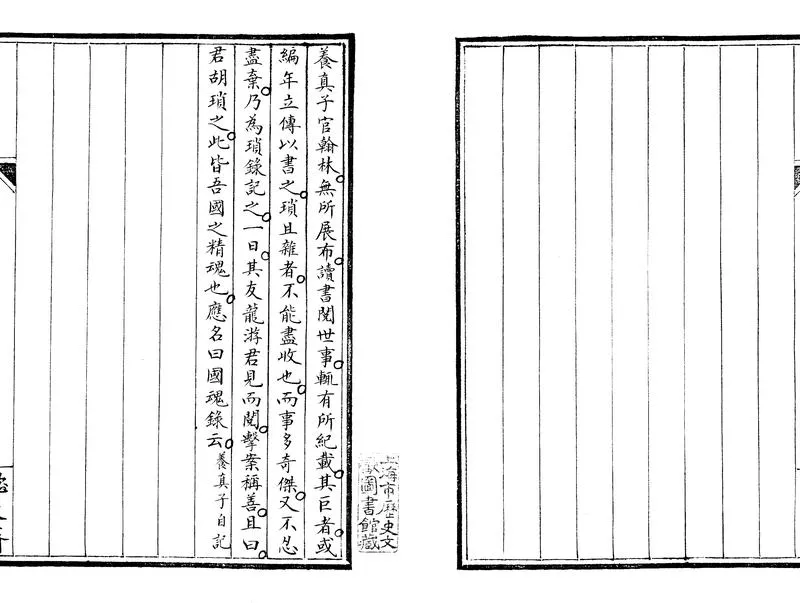 養真子官翰林。無所展布。讀書閱世事。輒有所紀載。其巨者。或
編年立傳以書之。瑣且雜者。不能盡收也。而事多奇傑。又不忍
盡棄。乃為瑣錄記之。一日。其友龍游君見而閱。擊案稱善。且曰。
君胡瑣之。此皆吾國之精魂也。應名曰國魂錄云。養真子自記
上海市歷史文
獻圖書館藏